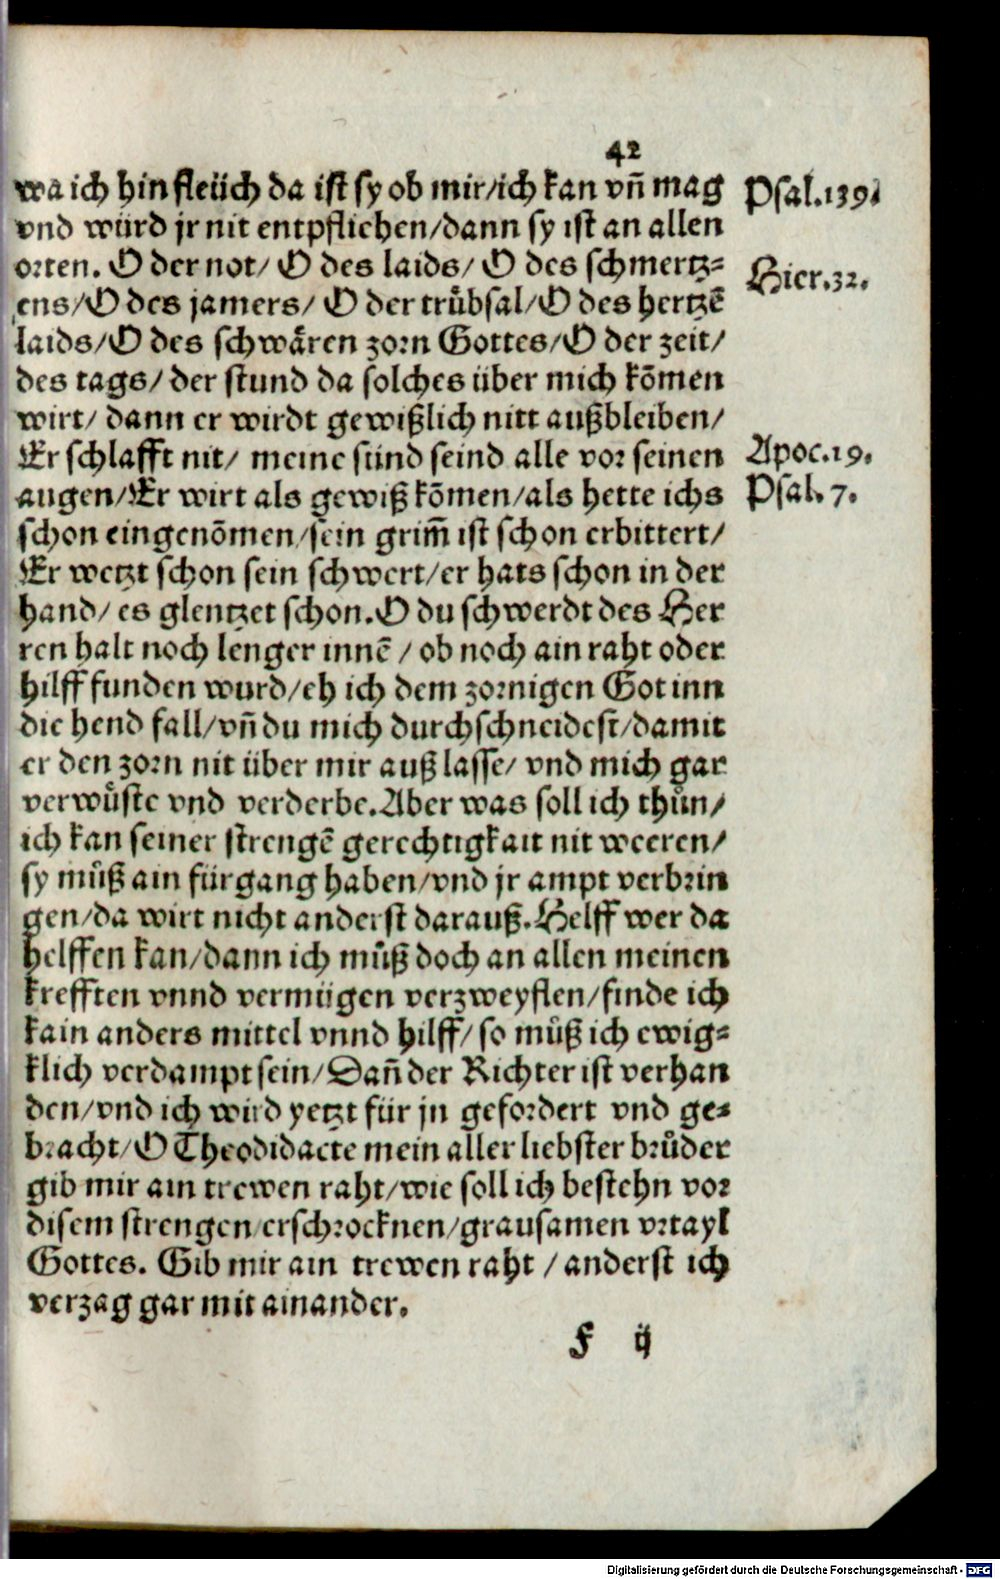 42
wa ich hin fleüch da ist sy ob mir/ich kan vñ mag
vnd würd jr nit entpfliehen/dann sy ist an allen
orten. O der not/ O des laids/ O des schmertz=
ens/O des jamers/ O der truͤbsal/O des hertzẽ
laids/O des schwaͤren zorn Gottes/O der zeit/
des tags/ der stund da solches über mich kõmen
wirt/ dann er wirdt gewißlich nitt außbleiben/
Er schlafft nit/ meine sünd seind alle vor seinen
augen/Er wirt als gewiß kõmen/als hette ichs
schon eingenõmen/sein grim̃ ist schon erbittert/
Er wetzt schon sein schwert/er hats schon in der
hand/ es glentzet schon. O du schwerdt des Her
ren halt noch lenger innẽ / ob noch ain raht oder
hilff funden wurd/eh ich dem zornigen Got inn
die hend fall/vñ du mich durchschneidest/damit
er den zorn nit über mir auß lasse/ vnd mich gar
verwuͤste vnd verderbe. Aber was soll ich thůn/
ich kan seiner strengẽ gerechtigkait nit weeren/
sy můß ain fürgang haben/vnd jr ampt verbrin
gen/da wirt nicht anderst darauß. Helff wer da
helffen kan/dann ich můß doch an allen meinen
krefften vnnd vermügen verzweyflen/finde ich
kain anders mittel vnnd hilff/ so můß ich ewig=
klich verdampt sein/Dañ der Richter ist verhan
den/vnd ich wird yetzt für jn gefordert vnd ge=
bracht/O Theodidacte mein aller liebster brůder
gib mir ain trewen raht/wie soll ich bestehn vor
disem strengen/erschrocknen/grausamen vrtayl
Gottes. Gib mir ain trewen raht / anderst ich
verzag gar mit ainander.
F ij
Psal.139.
Hier.32.
Apoc.19.
Psal. 7.
Digitalisierung gefördert durch die Deutsche Forschungsgemeinschaft - DFG